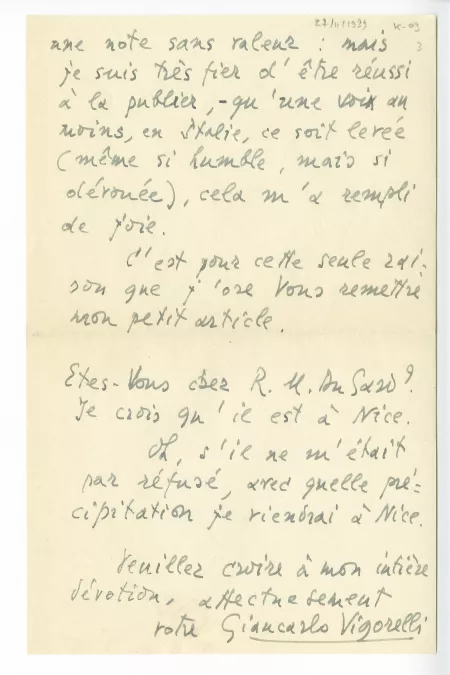 27/11/1939 K-09
3
une note sans valeur : mais
je suis très fier d'être réussi
à la publier, - qu'une voix au
moins, en Italie, ce soit levée
(même si humble, mais si
dévouée), cela m'a rempli
de joie.
C'est pour cette seule rai-
son que j'ose Vous remettre
mon petit article.
Etes-Vous chez R. M. Du Gard?
Je crois qu'il est à Nice.
Oh, s'il ne m'était
par réfusé, avec quelle pré=
cipitation je viendrai à Nice.
Veuillez croire à mon intière
dévotion, affectueusement
votre Giancarlo Vigorelli